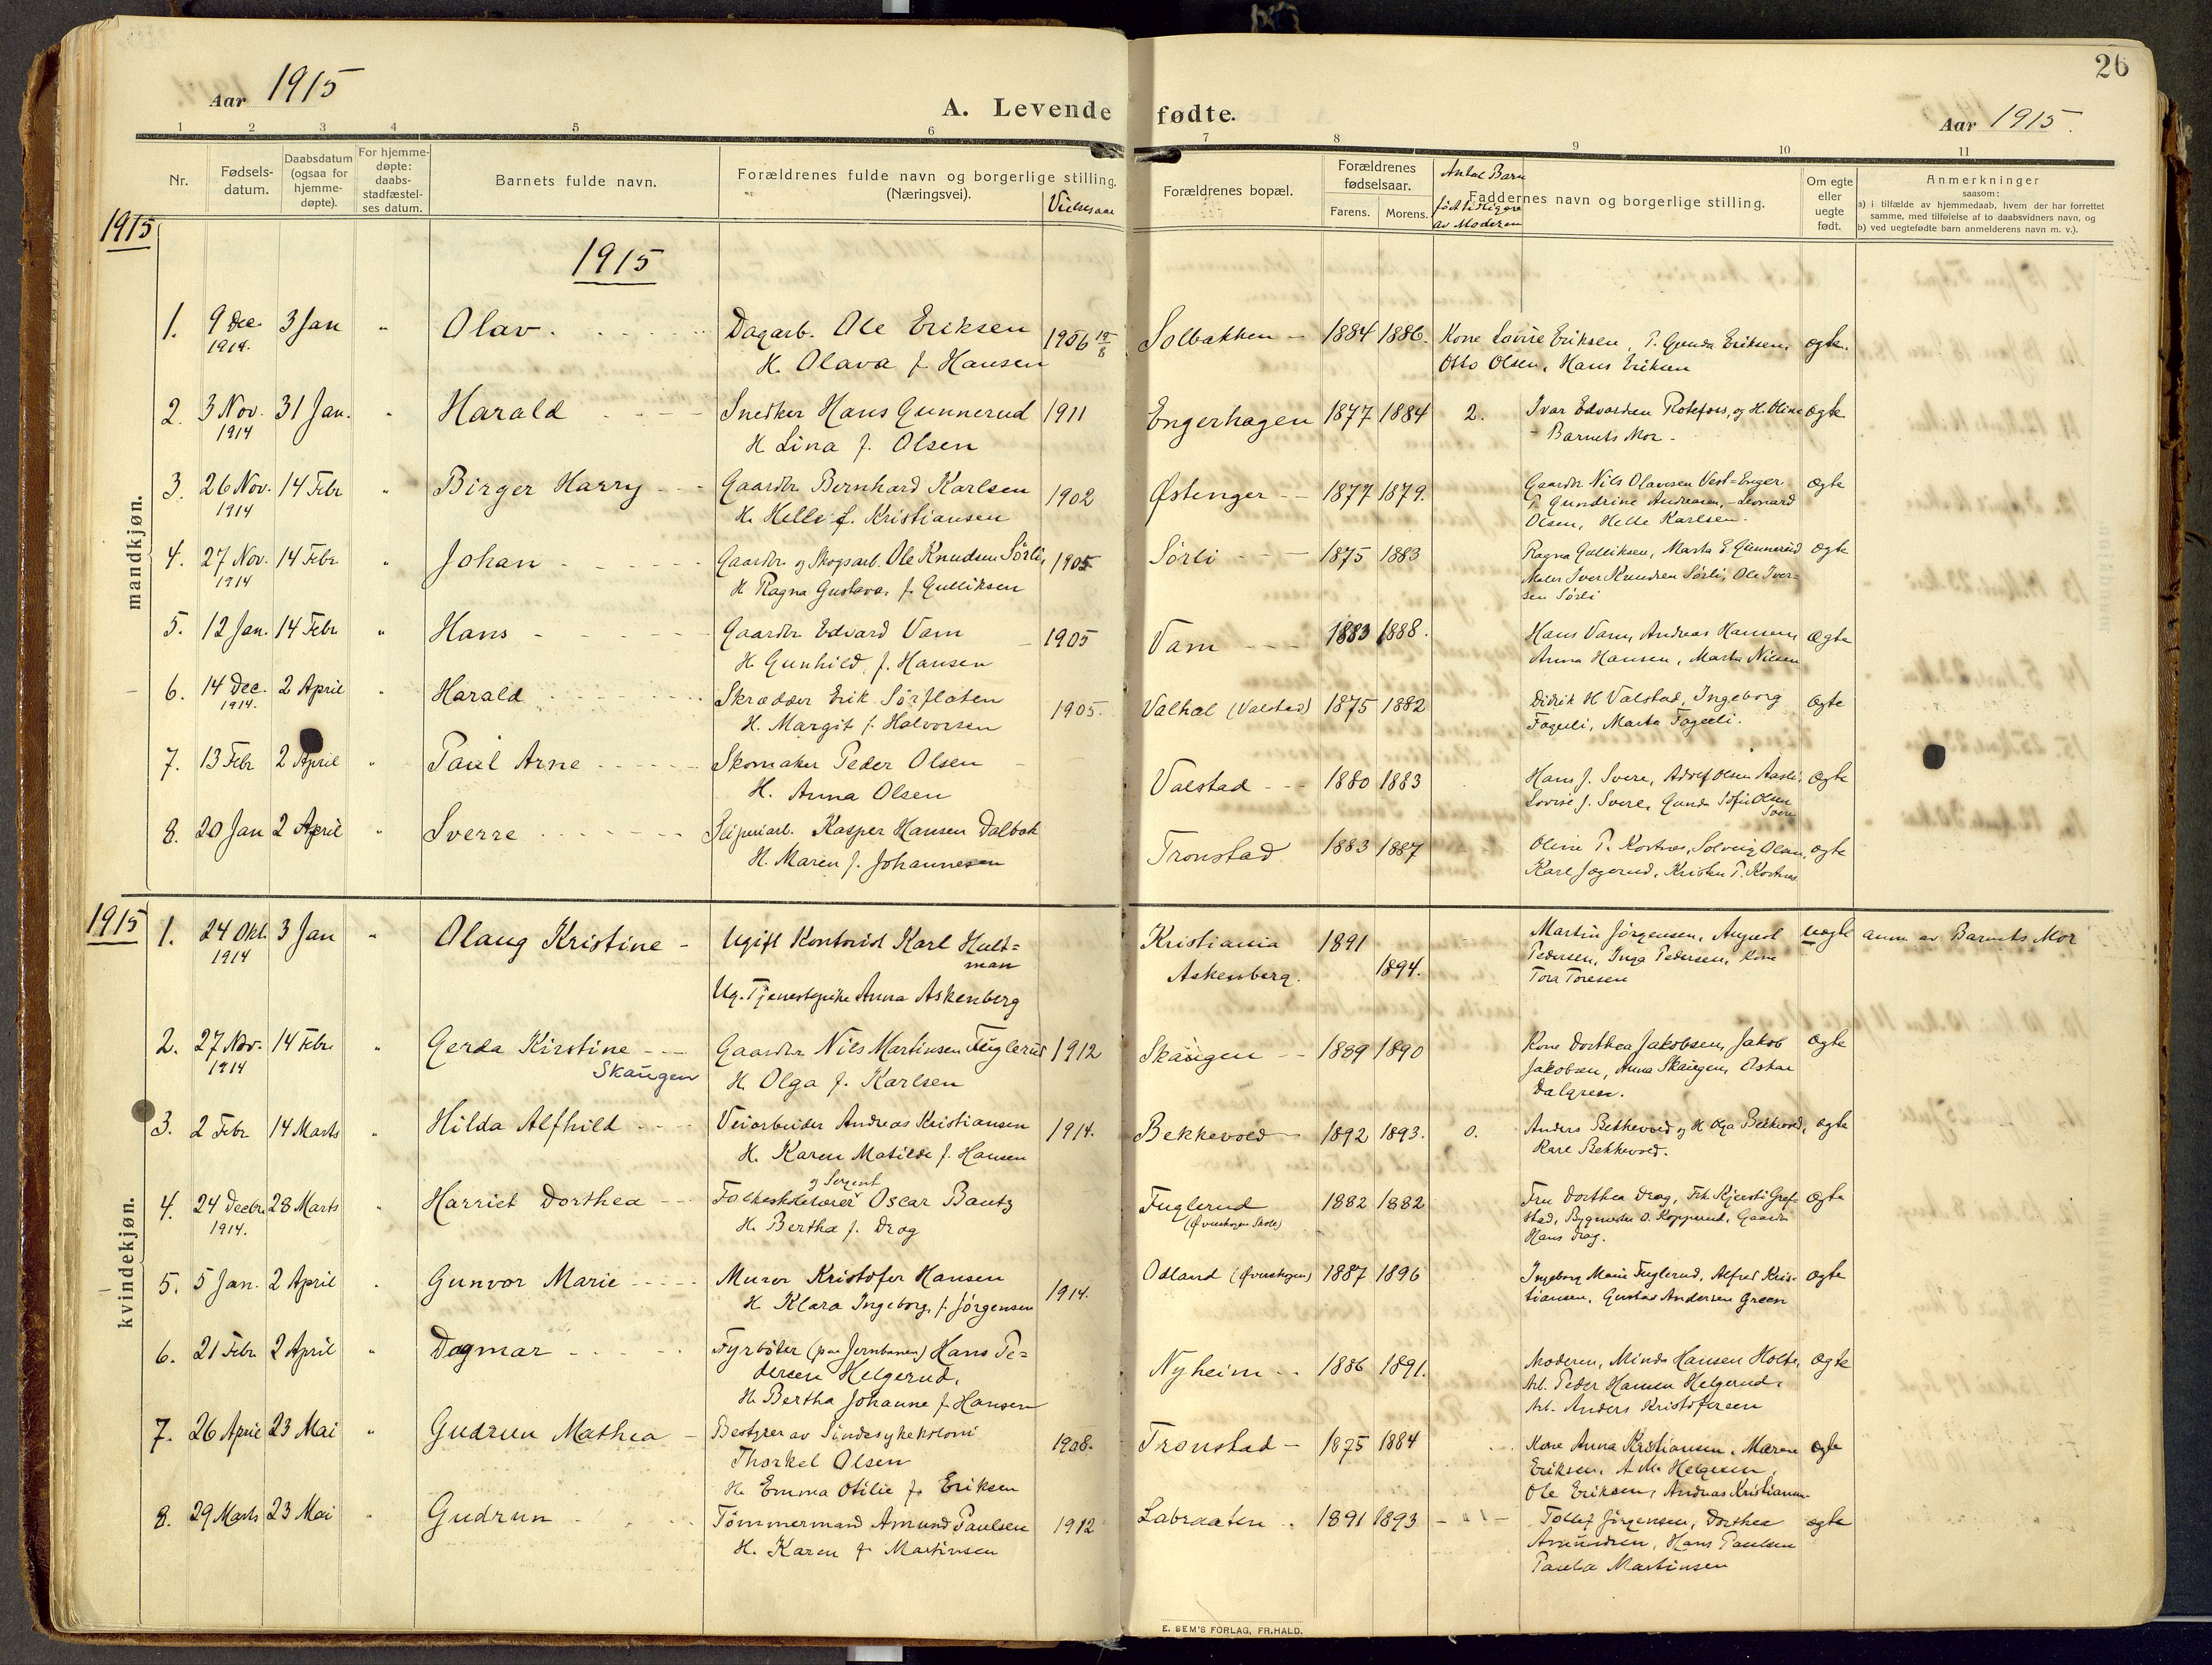 26
Aar 1915
A. Levende fødte.
Aar 1915.
1 2 3 4 5 6 7 8 9 10 11
Nr.
Fødsels-
datum.
Daabsdatum
(ogsaa for
hjemme-
døpte).
For hjemme-
døpte:
daabs-
stadfæstel-
ses datum.
Barnets fulde navn.
Forældrenes fulde navn og borgerlige stilling.
(Næringsvei).
Vielsesaar
Forældrenes bopæl.
Forældrenes
fødselsaar.
Farens. Morens.
Antal Barn
født tidligere
av Moderen
Faddernes navn og borgerlige stilling.
Om egte
eller
uegte
født.
Anmerkninger
saasom:
a) i tilfælde av hjemmedaab, hvem der har forrettet
samme, med tilføielse af to daabsvidners navn, og
b) ved uegtefødte barn anmelderens navn m. v.).
1915
1915
mandkjøn.
1. 9 Dec. 3 Jan " Olav. Dagarb. Ole Eriksen 1906 19/8 Solbakken 1884 1886. Kone Lovise Eriksen, P. Gunda Eriksen, egte.
1914. H. Olava f. Hansen Otto Olsen, Hans Eriksen
2. 3 Nov. 31 Jan. " Harald Snedker Hans Gunnerud 1911 Engerhagen 1877 1884 2. Ivar Edvardsen Rotefoss, og H. Oline egte
1914 H. Lina f. Olsen - Barnets Mor -
3. 26 Nov. 14 Febr " Birger Harry Gaardbr. Bernhard Karlsen 1902 Østenger 1877 1879. Gaardbr Nils Olavesen Vest-Enger egte
1914 H. Helle f. Kristiansen P. Gundrine Andresen, Leonard
Olsen, Helle Karlsen.
4. 27 Nov. 14 Febr " Johan Gaardbr. og Skogsarb. Ole Knudsen Sørli, 1905 Sørli 1875 1883 Ragna Gulliksen, Marta E. Gunnerud egte
1914 H. Ragna Gustava f. Gulliksen Maler Iver Knudsen Sørli, Ole Iver-
sen Sørli
5. 12 Jan. 14 Febr " Hans Gaardbr. Edvard Vam 1905 Vam 1883 1888. Hans Vam, Andreas Hansen, egte
H. Gunhild f. Hansen Anna Hansen, Marta Nilsen
6. 14 Dec. 2 April " Harald Skrædder Erik Sørflaten 1905. Valhal (Valstad) 1875 1882 Didrik H Valstad, Ingeborg egte
1914. H. Margit f. Halvorsen Fagerli, Marta Fagerli.
7. 13 Febr 2 April " Paul Arne Skomaker Peder Olsen Valstad 1880 1883 Hans J. Svere, Adolf Olsen Aasli, egte
H. Anna Olsen Lovise J. Svere, Gunda Sofie Olsen
Svere
8. 20 Jan 2 April " Sverre Sliperiarb. Kasper Hansen Dalbak Tronstad 1883 1887 Oline P. Kortnes, Solveig Olsen, egte
H. Maren f. Johannesen Karl Jogerud, Kristen P. Kortnes
1915
kvindekjøn.
1. 24 Okt. 3 Jan " Olaug Kristine Ugift Kontorist Karl Hult= Kristiania 1891 Martin Jørgensen, August uegte anm. av Barnets Mor
1914 man Askenberg. 1894. Pedersen, Inga Pedersen, Kone
Ug. Tjenestepike Anna Askenberg Tora Toresen
2. 27 Nov. 14 Febr. " Gerda Kirstine Gaardbr Nils Martinsen Fuglerud 1912 Skaugen 1889 1890 Kone Dorthea Jakobsen, Jakob egte
1914 Skaugen H. Olga f. Karlsen Jakobsen, Anna Skaugen, Oskar
Dalgren.
3. 2 Febr 14 Marts " Hilda Alfhild Veiarbeider Andreas Kristiansen 1914. Bekkevold 1892 1893. 0. Anders Bekkevold og H. Olga Bekkevold, egte
H. Karen Matilde f. Hansen Karl Bekkevold.
4. 24 Decbr. 28 Marts " Harriet Dorthea Folkeskolelærer og Sergent Oscar Bautz Fuglerud 1882 1882 Fru Dorthea Drag, Frk Kjersti Gref- egte
1914. H. Bertha f. Drag (Øverskogen Skole) stad, Bygmester O. Kopperud, Gaardbr.
Hans Drag.
5. 5 Jan. 2 April Gunvor Marie Murer Kristofer Hansen 1914. Odland (Øverskogen) 1887 1896 Ingeborg Marie Fuglerud, Alfred Kris- egte
H. Klara Ingeborg, f. Jørgensen tiansen, Gustav Andersen Green
6. 21 Febr 2 April " Dagmar Fyrbøter (paa Jernbanen) Hans Pe= Nyheim 1886 1891. Moderen, Minda Hansen Holte, egte
dersen Helgerud, Arb. Peder Hansen Helgerud,
H. Bertha Johanne f. Hansen Arb. Anders Kristofersen
7. 26 April 23 Mai " Gudrun Mathea Bestyrer av Sindssykekoloni 1908. Tronstad 1875 1884 Kone Anna Kristiansen, Maren egte
Thorkel Olsen Eriksen, A.M. Helgesen,
H. Emma Otilie f. Eriksen Ole Eriksen, Andreas Kristiansen
8. 29 Marts 23 Mai " Gudrun Tømmermand Amund Paulsen 1912 Labraaten 1891 1893 - 1 - Tollef Jörgensen, Dorthea egte
H. Karen f. Martinsen Amundsen, Hans Paulsen
Paula Martinsen
E. SEM'S FORLAG, FR.HALD.